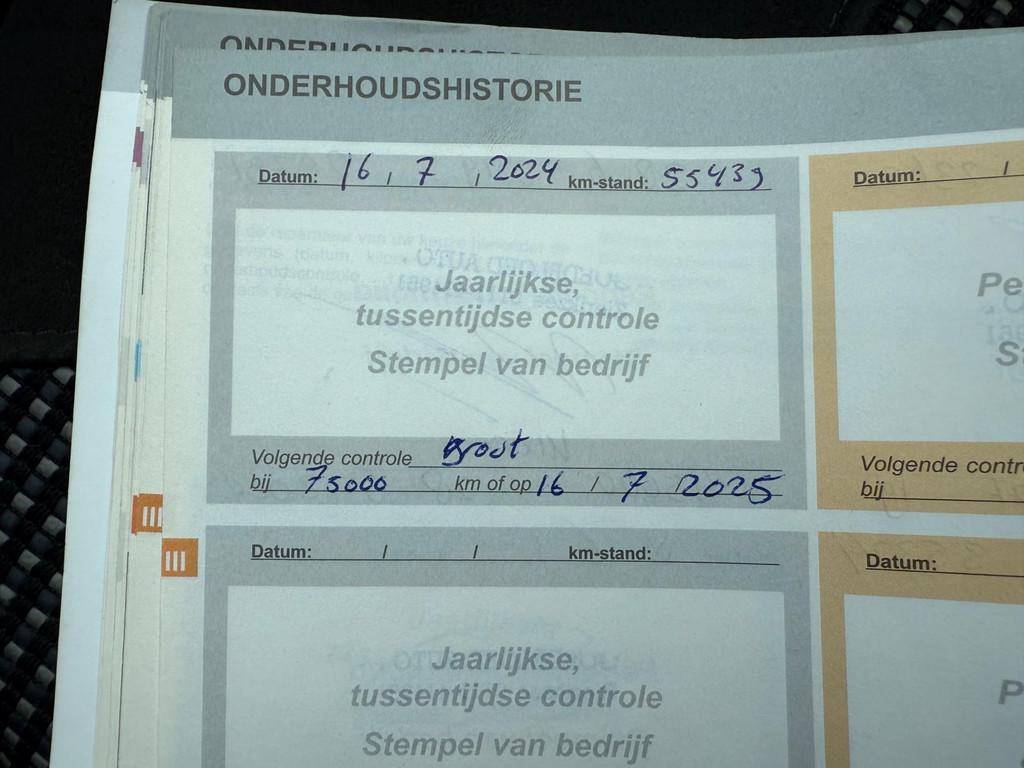 ONDERHOUDSHISTORIE
ONDERHOUDSHISTORIE
Datum: 16 / 7 / 2024 km-stand: 55439
Jaarlijkse,
tussentijdse controle
Stempel van bedrijf
Volgende controle groot
bij 75000 km of op 16 / 7 / 2025
Datum: /
Pe
S
Volgende contr
bij
Datum: / / km-stand:
Jaarlijkse,
tussentijdse controle
Stempel van bedrijf
Datum:
P